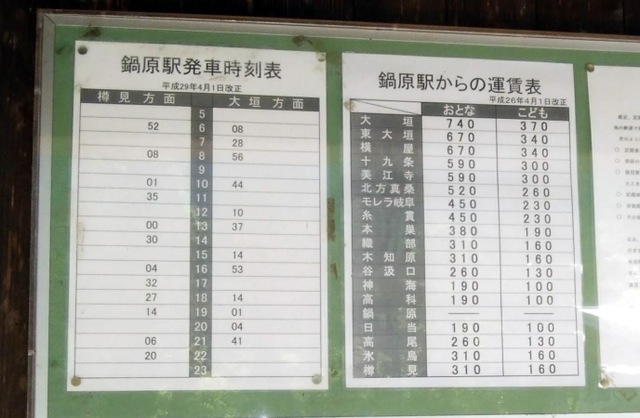 鍋原駅発車時刻表
平成29年4月1日改正
樽見方面 大垣方面
5
52 6 08
7 28
08 8 56
9
01 10 44
35 11
12 10
00 13 37
30 14
15 14
04 16 53
32 17
27 18 14
14 19 01
20 04
06 21 41
20 22
23
鍋原駅からの運賃表
平成26年4月1日改正
おとな こども
大垣 740 370
東大垣 670 340
横屋 670 340
十九条 590 300
美江寺 590 300
北方真桑 520 260
モレラ岐阜 450 230
糸貫 450 230
本巣 380 190
織部 310 160
木知原 310 160
谷汲口 260 130
神海 190 100
高科 190 100
鍋原 —— ——
日当 190 100
高尾 260 130
水鳥 310 160
樽見 310 160